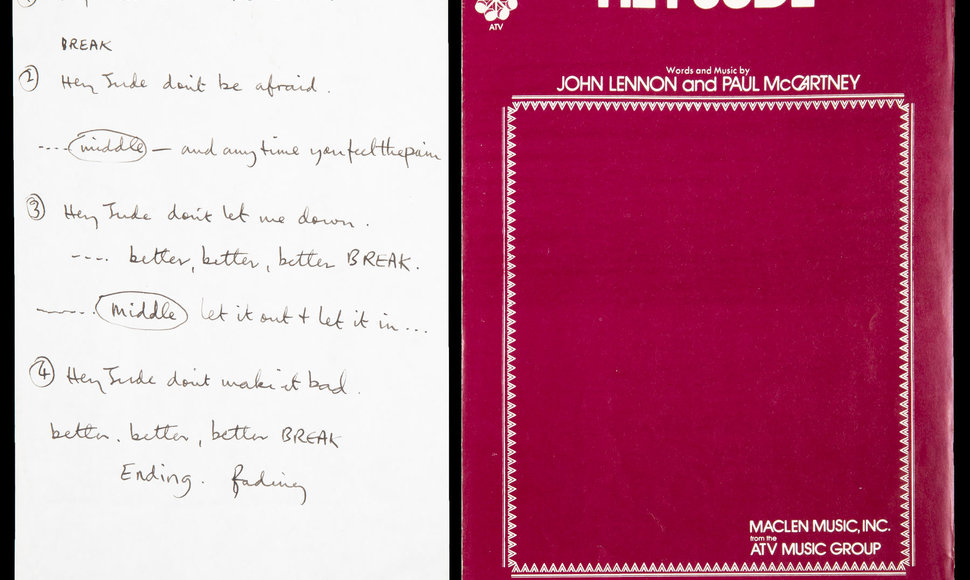 BREAK
② Hey Jude don't be afraid.
---- middle — and anytime you feel the pain
③ Hey Jude don't let me down.
---- better, better, better BREAK.
middle let it out + let it in...
④ Hey Jude don't make it bad.
better. better, better BREAK
Ending. fading
ATV
Words and Music by
JOHN LENNON and PAUL McCARTNEY
MACLEN MUSIC, INC.
from the
ATV MUSIC GROUP